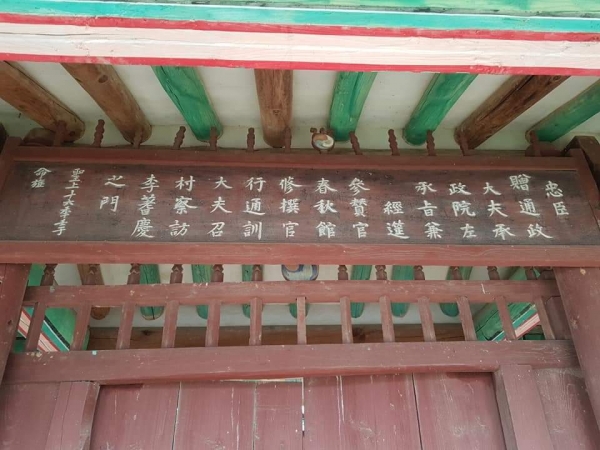 忠臣
贈通政
大夫承
政院左
承旨兼
經筵
參贊官
春秋館
修撰官
行通訓
大夫召
村察訪
李蓍慶
之門
聖上十六季
命旌